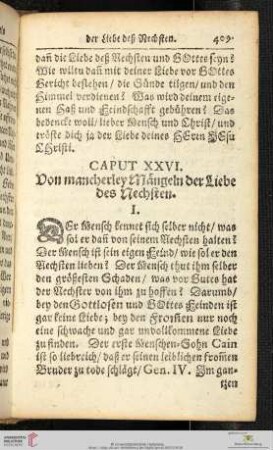 der Liebe deß Nechsten. 409
dañ die Liebe deß Nechsten und GOttes seyn?
Wie wiltu dañ mit deiner Liebe vor GOttes
Gericht bestehen / die Sünde tilgen / und den
Himmel verdienen? Was wird deinem eige-
nen Haß und Feindschafft gebühren? Das
bedencke woll / lieber Mensch und Christ / und
tröste dich ja der Liebe deines HErrn JEsu
CHristi.
CAPUT XXVI.
Von mancherley Mängeln der Liebe
des Nechsten.
I.
DEr Mensch kennet sich selber nicht / was
sol er dañ von seinem Nechsten halten?
Der Mensch ist sein eigen Feind / wie sol er den
Nechsten lieben? Der Mensch thut ihm selber
den größesten Schaden / was vor Gutes hat
der Nechster von ihm zu hoffen? Darumb /
bey den Gottlosen und GOttes Feinden ist
gar keine Liebe; bey den From̃en nur noch
eine schwache und gar unvollkommene Liebe
zu finden. Der erste Menschen-Sohn Cain
ist so liebreich / daß er seinen leiblichen from̃en
Bruder zu tode schlägt / Gen. IV. Im gan-
tzen